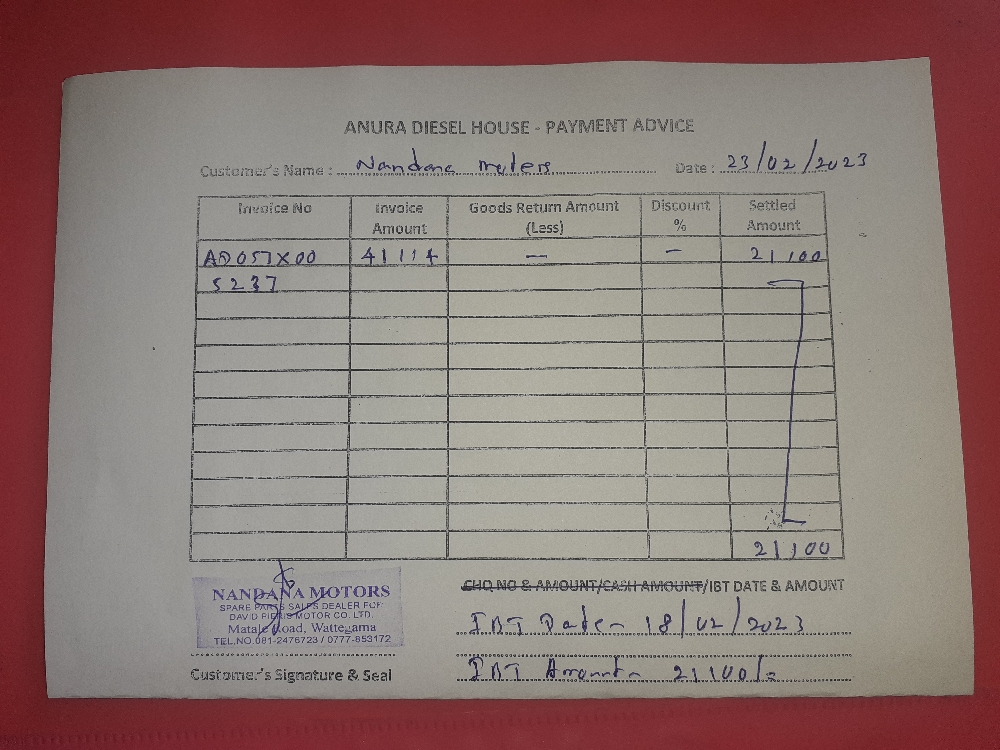 ANURA DIESEL HOUSE - PAYMENT ADVICE
Customer's Name : Nandana Moters Date : 23/02/2023
Invoice No Invoice Amount Goods Return Amount (Less) Discount % Settled Amount
AD057X00 41114 — — 21100
5237
21100
CHQ NO & AMOUNT/CASH AMOUNT/IBT DATE & AMOUNT
NANDANA MOTORS
SPARE PARTS SALES DEALER FOR
DAVID PIERIS MOTOR CO. LTD.
Matale Road, Wattegama
TEL.NO.081-2476723 / 0777-853172
IBT Date - 18/02/2023
IBT Amount - 21100/=
Customer's Signature & Seal